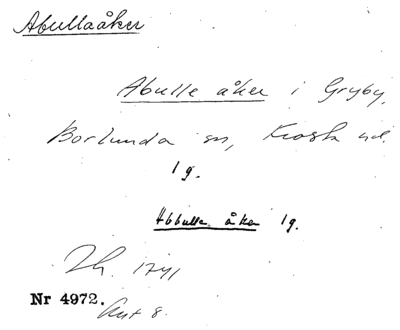 Abullaåker
Abulle åker i Gryby,
Borlunda sn, Frosta hd.
1 g.
Abbulle åker 1g.
1741
Nr 4972.
Akt 8.